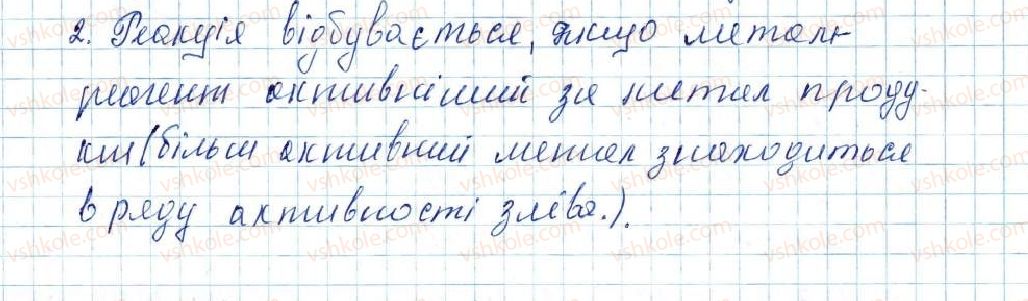 2. Реакція відбувається, якщо метал-
реагент активніший за метал проду-
кт (більш активний метал знаходиться
в ряду активності зліва.).